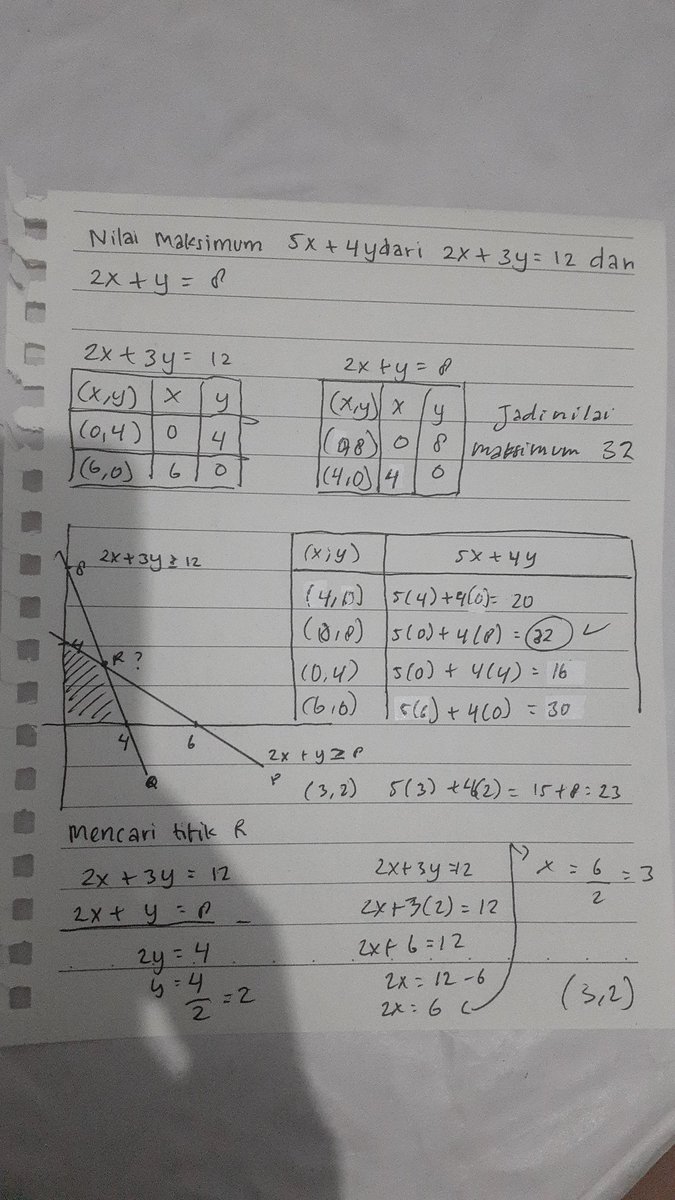 Nilai maksimum 5x + 4y dari 2x + 3y = 12 dan
2x + y = 8
2x + 3y = 12
(x,y) x y
(0,4) 0 4
(6,0) 6 0
2x + y = 8
(x,y) x y
(0,8) 0 8
(4,0) 4 0
Jadi nilai
maksimum 32
8 2x + 3y ≥ 12
4
R ?
4 6
2x + y ≥ P
Q P
(x,y) 5x + 4y
(4,0) 5(4) + 4(0) = 20
(0,8) 5(0) + 4(8) = 32 ✓
(0,4) 5(0) + 4(4) = 16
(6,0) 5(6) + 4(0) = 30
(3,2) 5(3) + 4(2) = 15 + 8 = 23
Mencari titik R
2x + 3y = 12
2x + y = 8 -
2y = 4
y = 4/2 = 2
2x + 3y = 12
2x + 3(2) = 12
2x + 6 = 12
2x = 12 - 6
2x = 6
x = 6/2 = 3
(3,2)